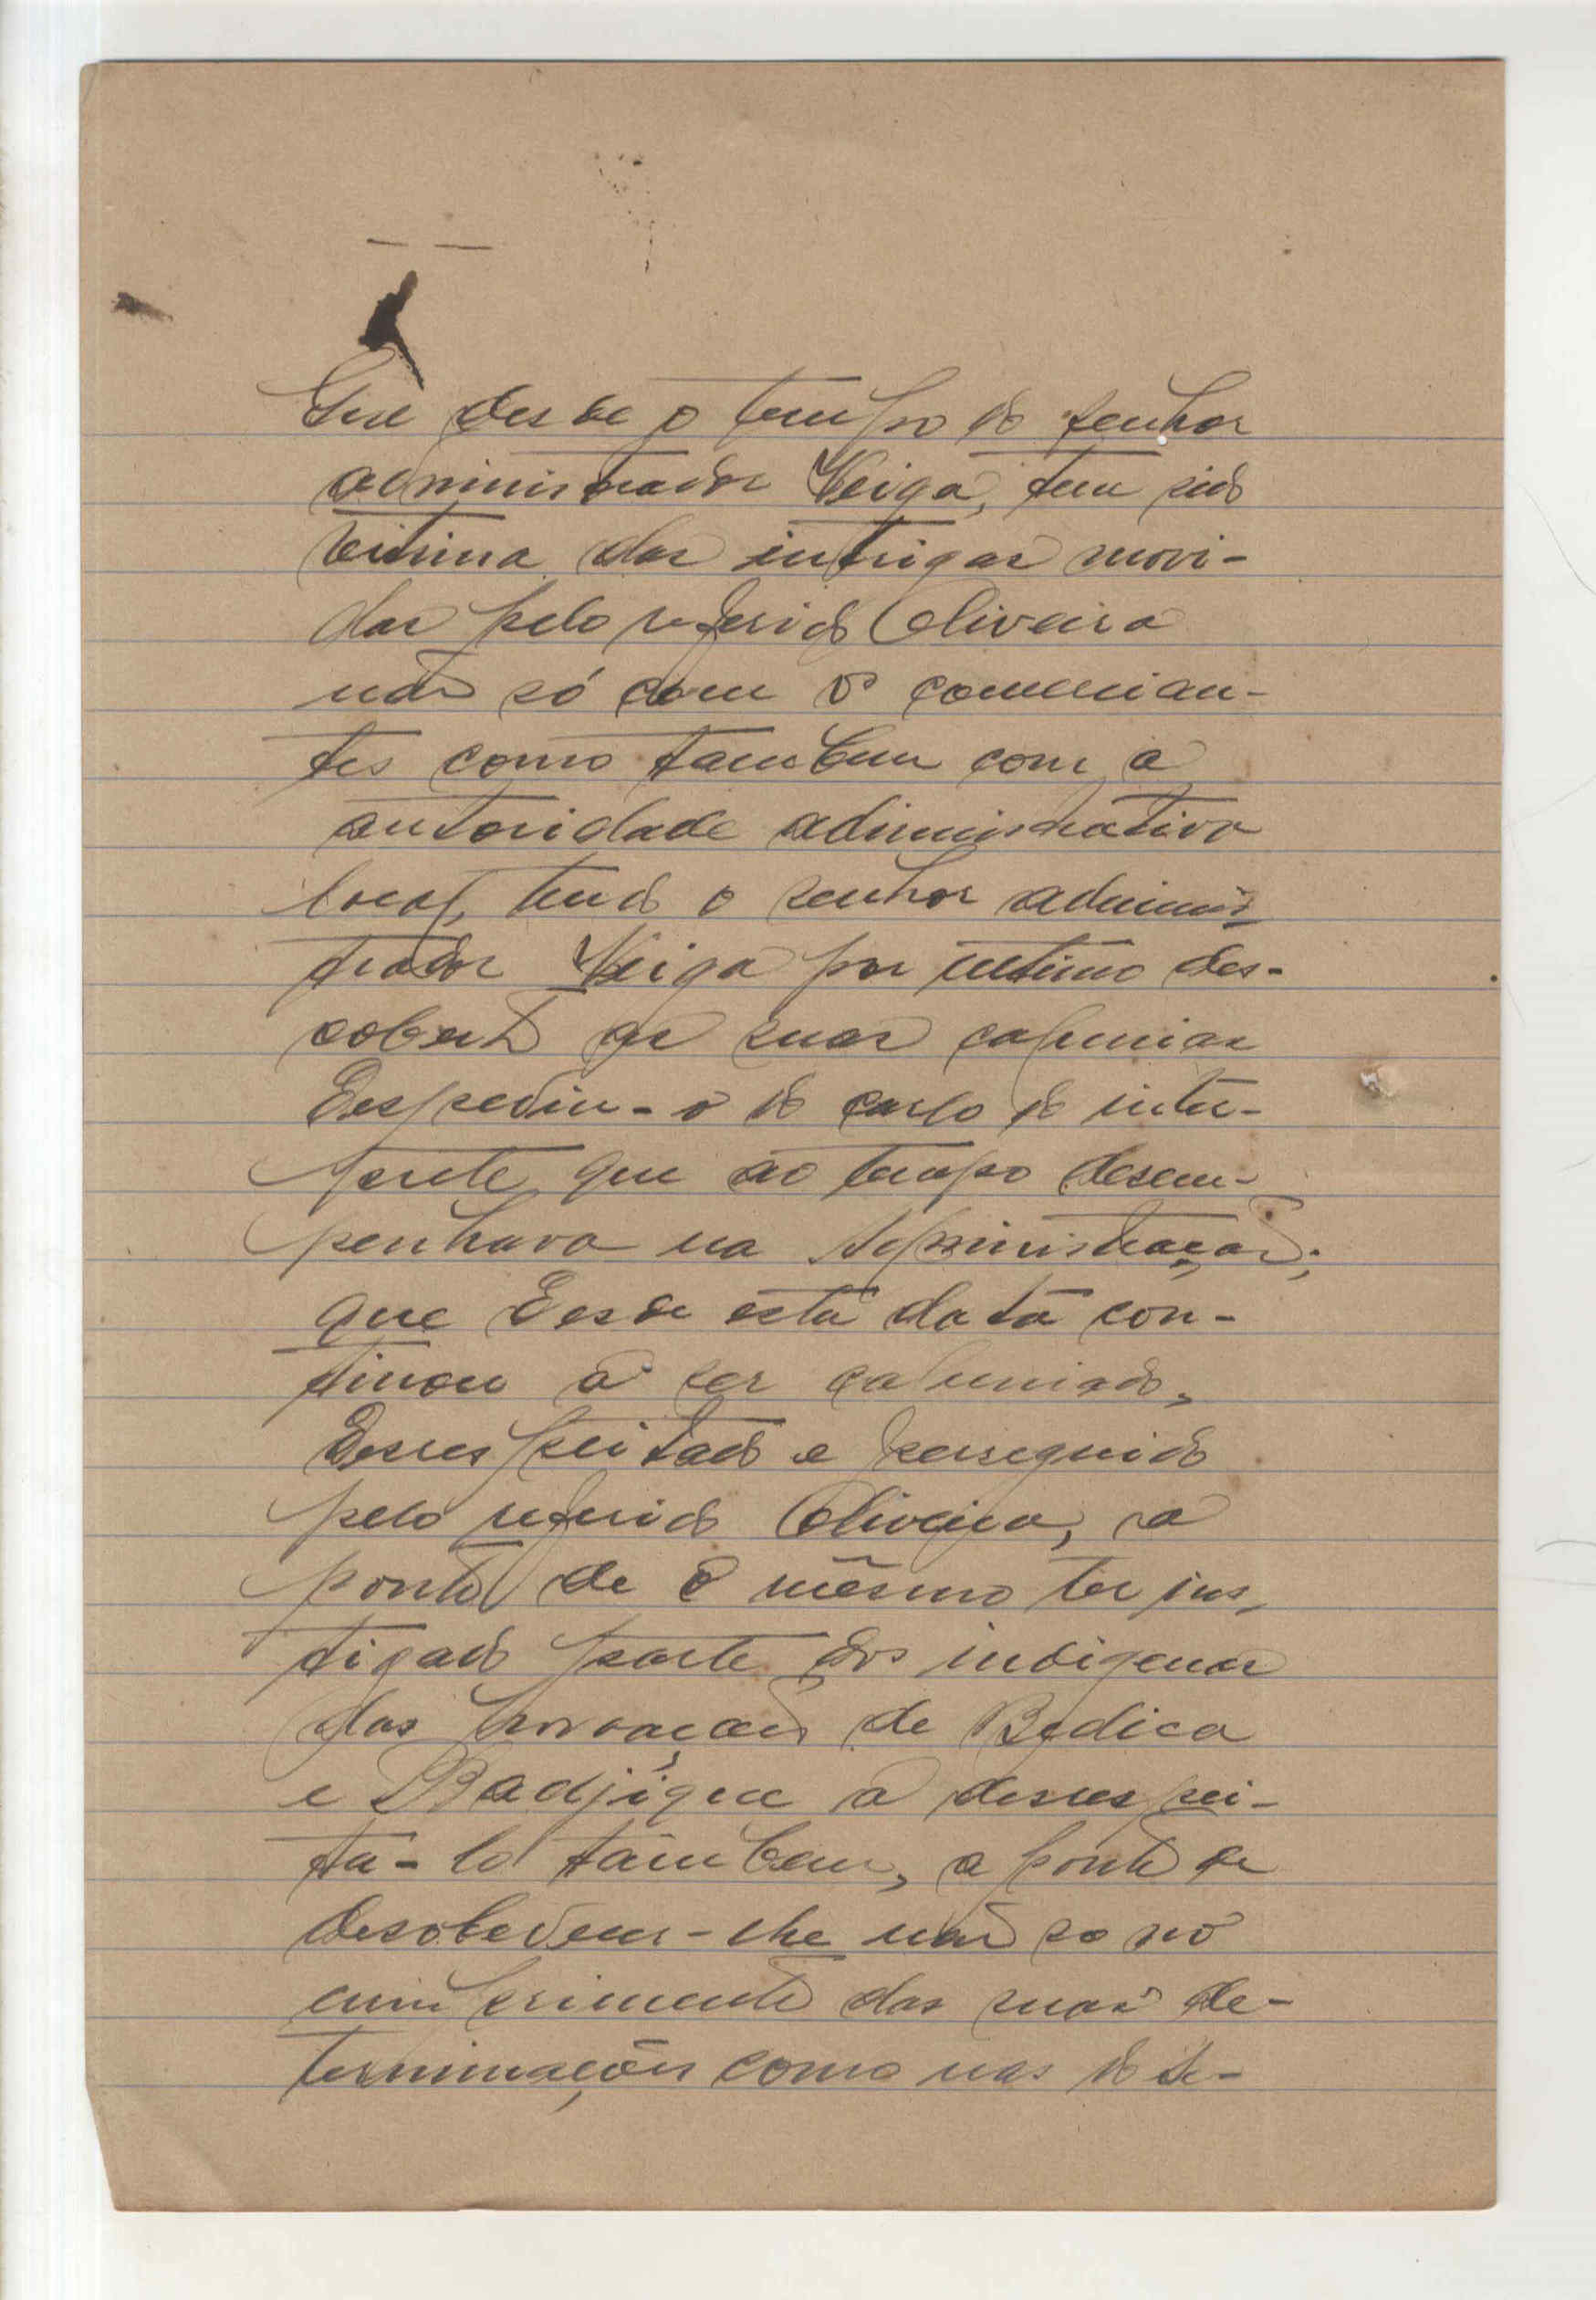 Que desde o tempo do senhor
administrador Veiga, tem sido
vitima das intrigas movi-
das pelo referido Oliveira
não só com os comercian-
tes como tambem com a
autoridade administrativa
local, tendo o senhor adminis-
trador Veiga por ultimo des-
coberto as suas calunias
Despediu-o do cargo de inter-
prete que ao tempo desem-
penhava na Administração;
que desde esta data con-
tinou a ser caluniado,
Desrespeitado e perseguido
pelo referido Oliveira, a
ponto de o mêsmo ter ins-
tigado parte dos indigenas
das povoações de Bedica
e Badjique a desrespei-
ta-lo tâmbem, a ponto de
desobedecer-lhe não so no
cumprimento das suas de-
terminações como nas do Se-